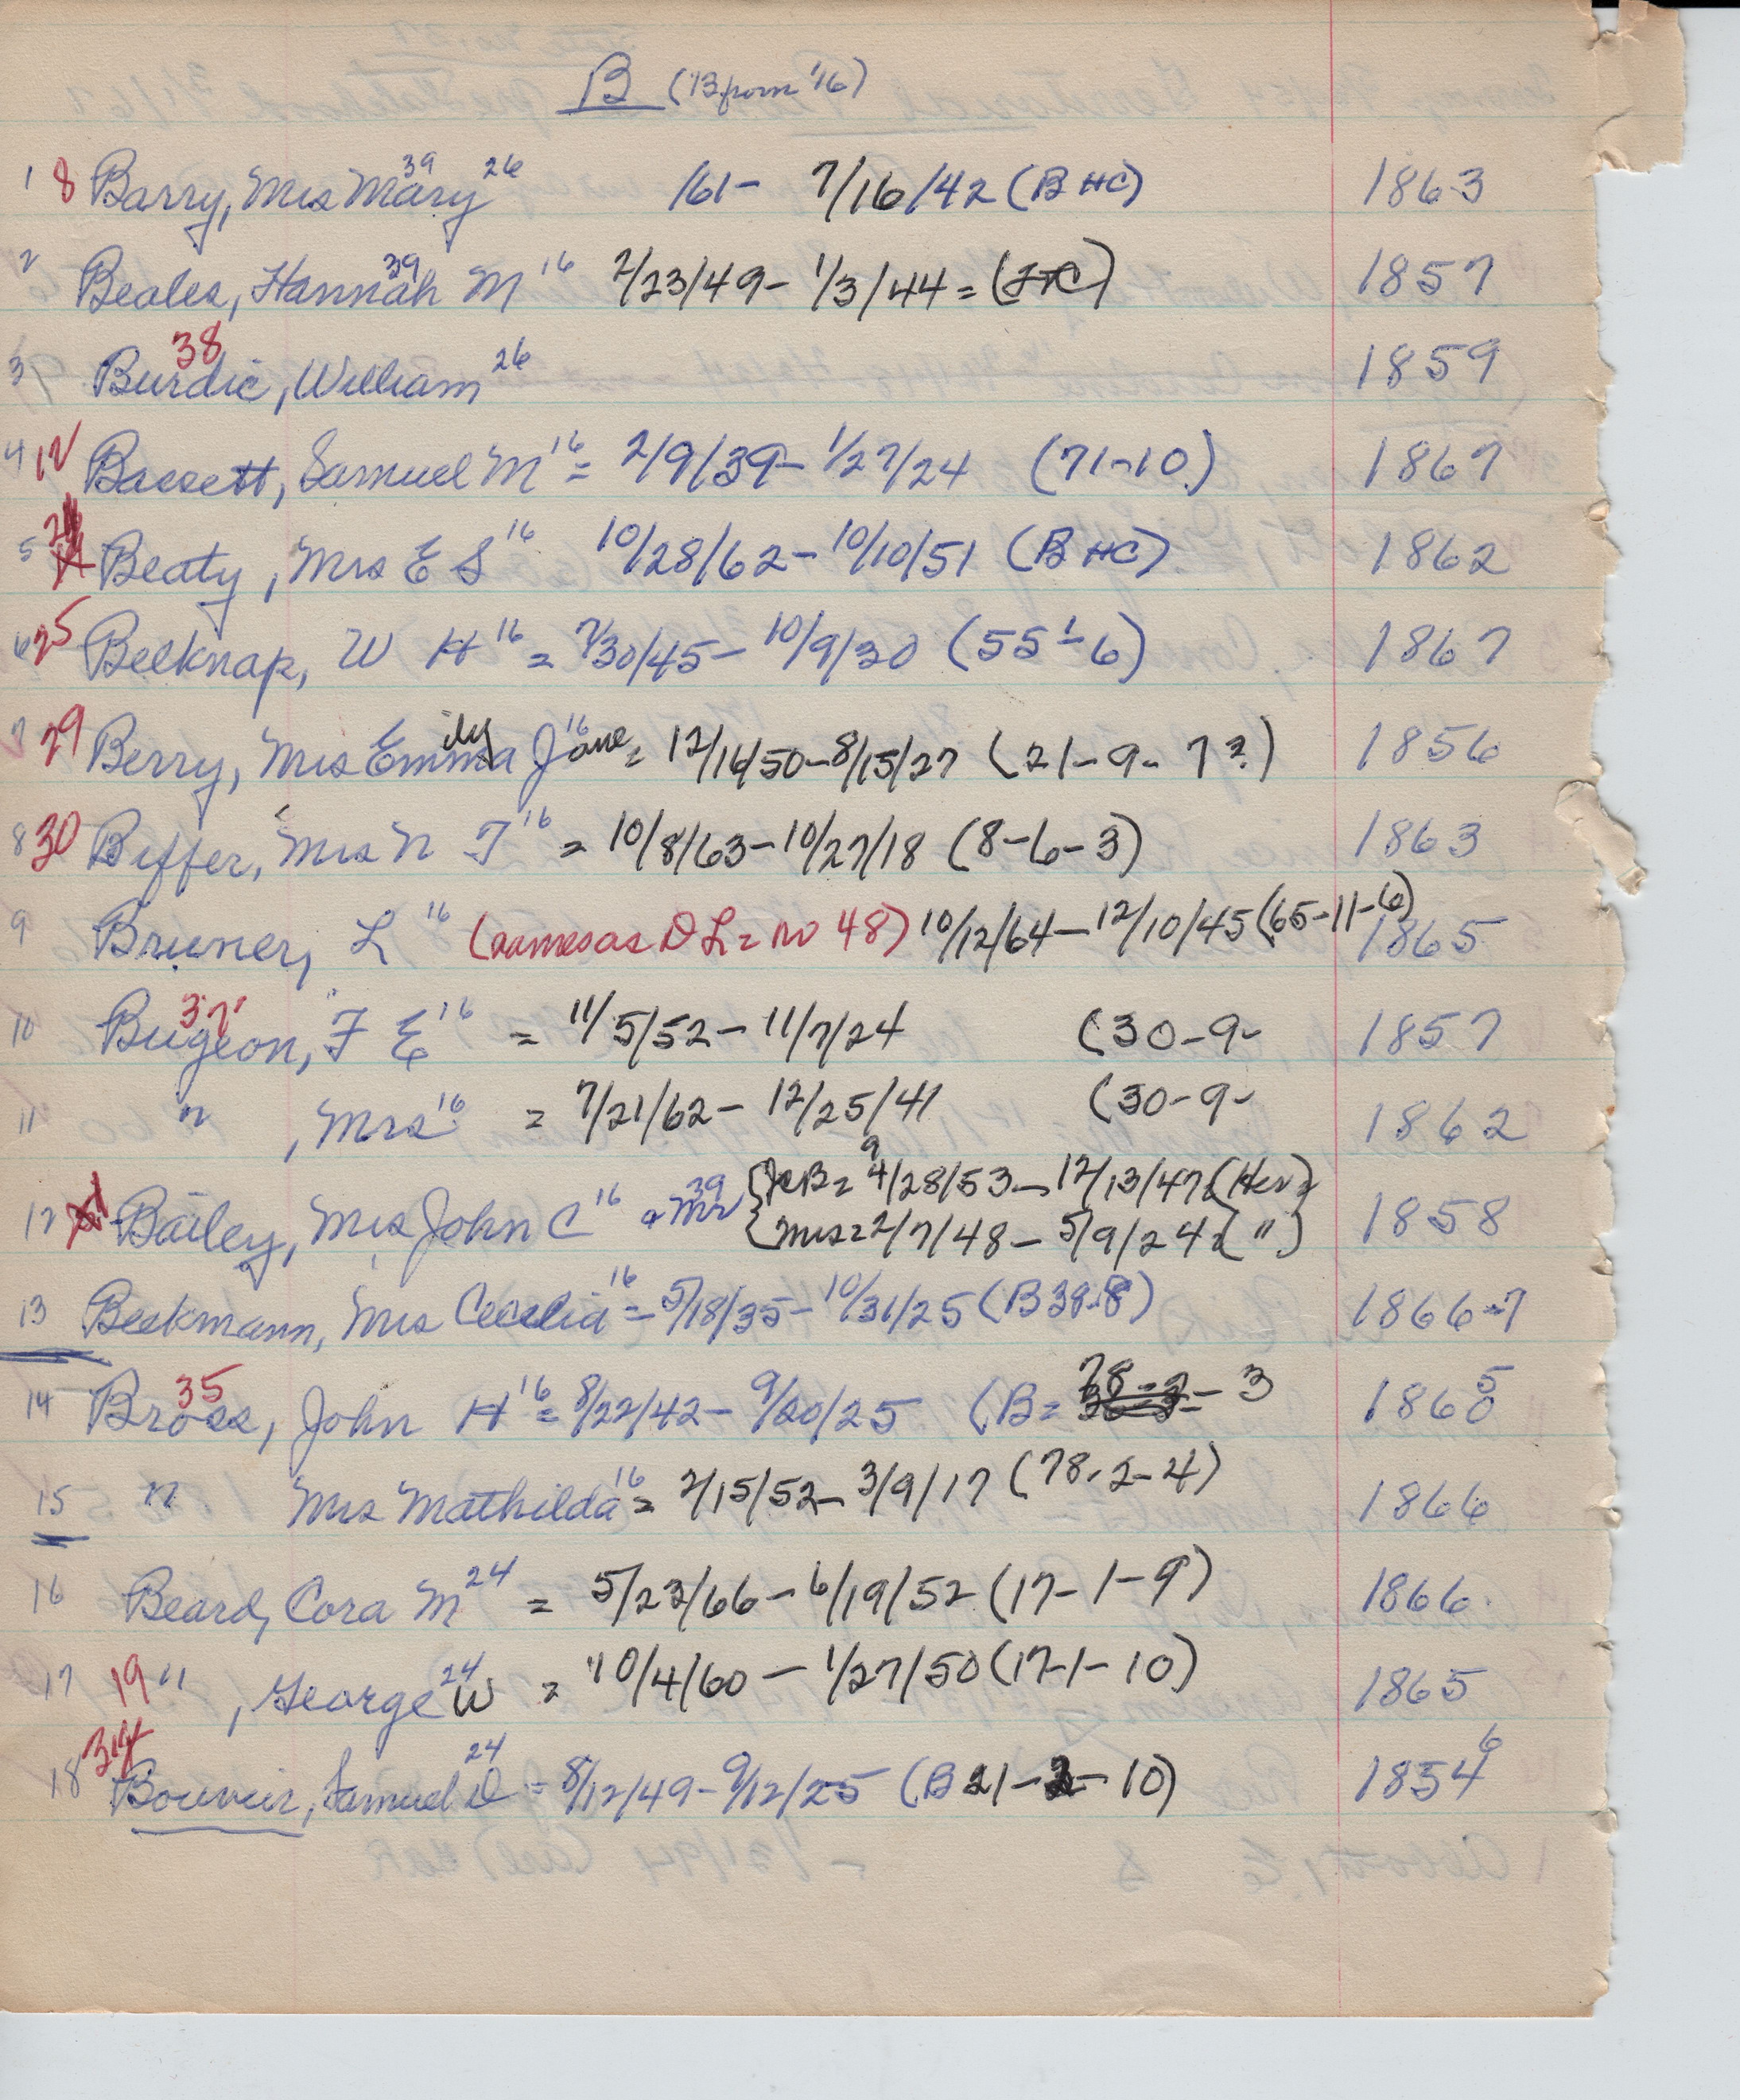 B (13 from '16)
1 8 Barry, Mrs Mary 39 26 /61 - 7/16/42 (B HC) 1863
2 Beales, Hannah M 39 16 2/23/49 - 1/3/44 = 1857
3 38 Burdic, William 26 1859
4 12 Bassett, Samuel M 16 = 2/9/39 - 1/27/24 (71-10) 1867
5 Beaty, Mrs E S 16 10/28/62 - 10/10/51 (B HC) 1862
6 25 Belknap, W H 16 = 7/30/45 - 10/9/30 (55 1-6) 1867
7 29 Berry, Mrs Emma ily Jane 16 = 12/16/50 - 8/15/27 (21-9-7?) 1856
8 30 Biffer, Mrs N T 16 = 10/8/63 - 10/27/18 (8-6-3) 1863
9 Bruner, L 16 (same as D L = no 48) 10/12/64 - 12/10/45 (65-11-6) 1865
10 37 Bugeon, F E 16 = 11/5/52 - 11/7/24 (30-9- 1857
11 " , Mrs 16 = 7/21/62 - 12/25/41 (30-9- 1862
12 Bailey, Mrs John C 16 & Mr 39 { JCB = 9/28/53 - 12/13/47 1858
{ Mrs = 2/7/48 - 5/9/24 (")
13 Beekmann, Mrs Cecelia 16 = 5/18/35 - 10/31/25 (B 39-8) 1866-7
14 35 Bross, John H 16 = 8/22/42 - 9/20/25 (B = 78-2-3 1865
15 " Mrs Mathilda 16 = 2/15/52 - 3/9/17 (78-2-4) 1866
16 Beard, Cora M 24 = 5/23/66 - 6/19/52 (17-1-9) 1866
17 19 " , George W 24 = 10/4/60 - 1/27/50 (17-1-10) 1865
18 34 Bouvier, Samuel D 24 = 8/12/49 - 9/12/25 (B 21-2-10) 1854 6